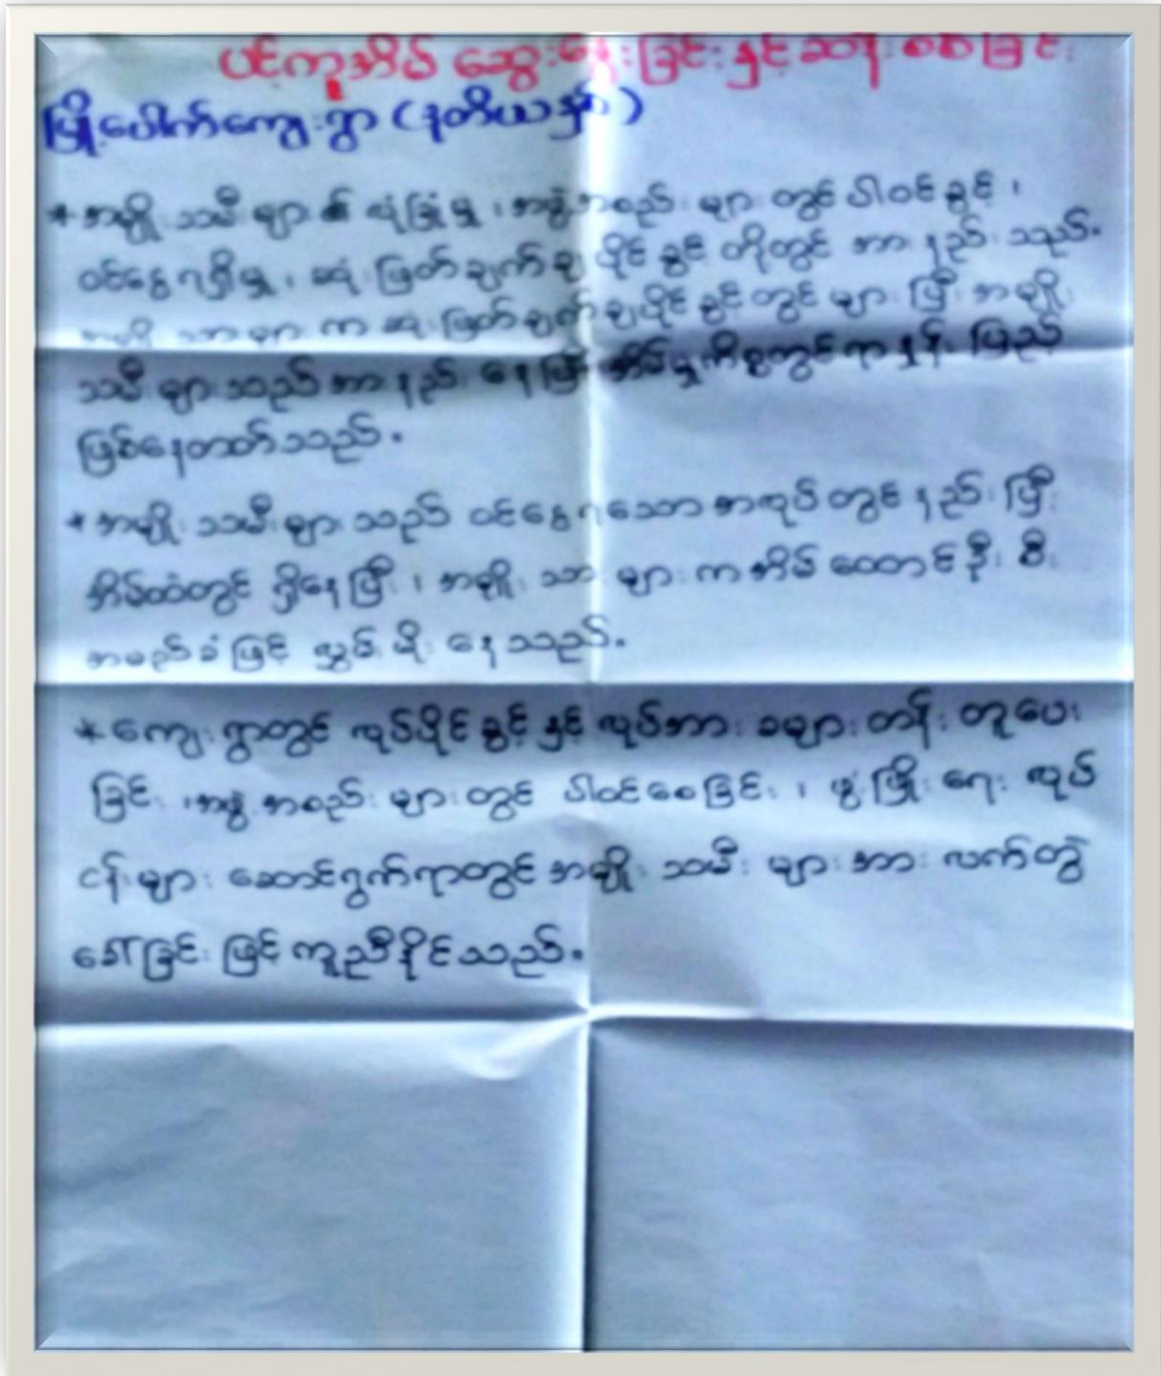 ပင့်ကူအိမ် ဆွေးနွေးခြင်းနှင့်ဆန်းစစ်ခြင်း
မြို့ပေါက်ကျေးရွာ (ဒုတိယနှစ်)
* အမျိုးသမီးများ၏ လုံခြုံမှု ၊ အဖွဲ့အစည်းများတွင် ပါဝင်ခွင့် ၊
ဝင်ငွေရရှိမှု ၊ ဆုံးဖြတ်ချက်ချပိုင်ခွင့် တို့တွင် အားနည်းသည်။
အမျိုးသားများက ဆုံးဖြတ်ချက်ချပိုင်ခွင့်တွင် များပြီး အမျိုး
သမီးများသည် အားနည်းနေပြီး အိမ်မှုကိစ္စတွင် ရာနှုန်းပြည့်
ဖြစ်နေတတ်သည်။
* အမျိုးသမီးများသည် ဝင်ငွေရသောအလုပ်တွင် နည်းပြီး
အိမ်ထဲတွင် ရှိနေပြီး ၊ အမျိုးသားများက အိမ်ထောင်ဦးစီး
အမည်ခံဖြင့် လွှမ်းမိုးနေသည်။
* ကျေးရွာတွင် လုပ်ပိုင်ခွင့်နှင့် လုပ်အားခများ တန်းတူပေး
ခြင်း ၊ အဖွဲ့အစည်းများတွင် ပါဝင်စေခြင်း ၊ ဖွံ့ဖြိုးရေးလုပ်
ငန်းများ ဆောင်ရွက်ရာတွင် အမျိုးသမီးများအား လက်တွဲ
ခေါ်ခြင်းဖြင့် ကူညီနိုင်သည်။